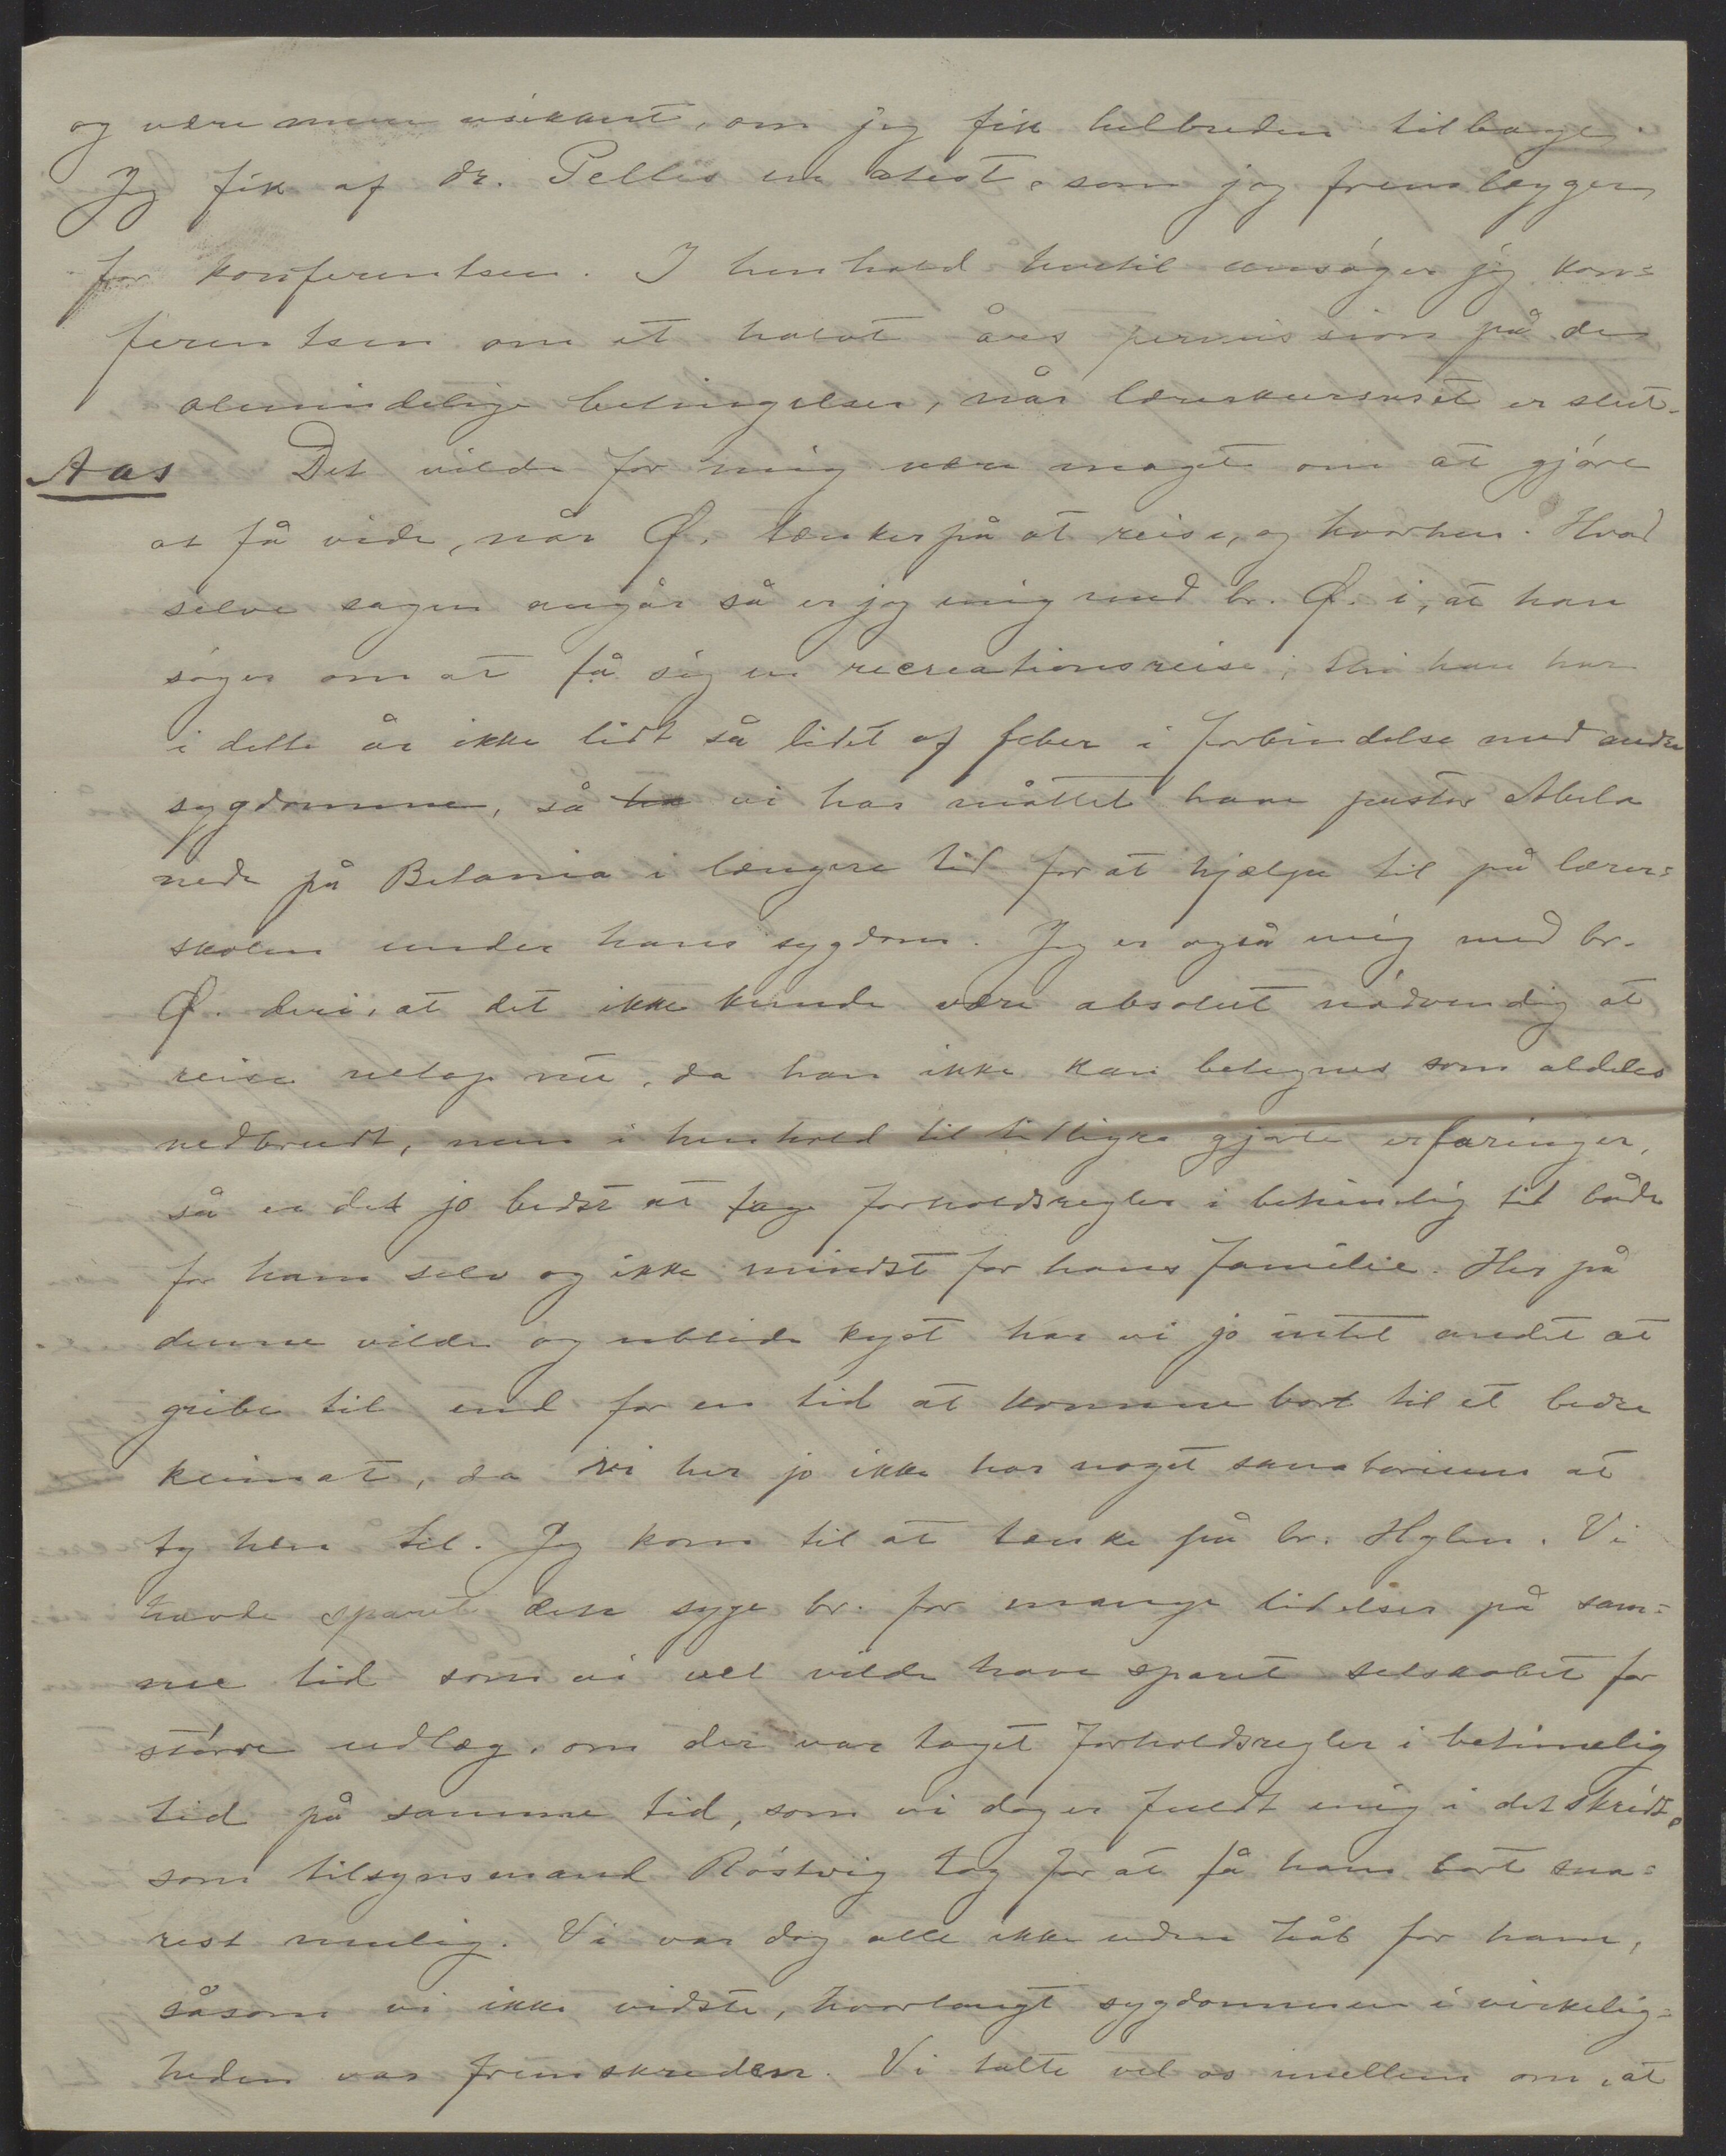 og være mere usikkert, om jeg fik helbreden tilbage.
Jeg fik af dr. Pellis en atest, som jeg fremlægger
for konferentsen. I henhold hertil ansøger jeg kon=
ferentsen om et halvt års permission på de
almindelige betingelser, når lærerkursuset er slut.
Aas Det vilde for mig være meget om at gjøre
at få vide, når Ø. tænker på at reise, og hvorhen. Hvad
selve sagen angår så er jeg enig med br. Ø. i, at han
søger om at få sig en recreationsreise; thi han har
i dette år ikke lidt så lidet af feber i forbindelse med andre
sygdomme, så ha vi har måttet have pastor Abela
nede på Betania i længere tid for at hjælpe til på lærer=
skolen under hans sygdom. Jeg er også enig med br.
Ø. deri, at det ikke kunde være absolut nødvendig at
reise netop nu, da han ikke kan betegnes som aldeles
nedbrudt, men i henhold til tidligre gjorte erfaringer,
så er det jo bedst at tage forholdsregler i betimelig tid både
for ham selv og ikke mindst for hans familie. Her på
denne vilde og ublide kyst har vi jo intet andet at
gribe til end for en tid at komme bort til et bedre
keimat, da vi her jo ikke har noget sanatorium at
ty hen til. Jeg kom til at tænke på br. Hylen. Vi
havde sparet den syge br. for mange lidelser på sam=
me tid som vi vel vilde have sparet selskabet for
større udlæg, om der var taget forholdsregler i betimelig
tid på samme tid, som vi dog er fuldt enig i det skridt,
som tilsynsmand Røstvig tog for at få ham bort sna=
rest mulig. Vi var dog alle ikke uden håb for ham,
såsom vi ikke vidste, hvorlangt sygdommen i virkelig=
heden var fremskreden. Vi talte vel os imellem om, at